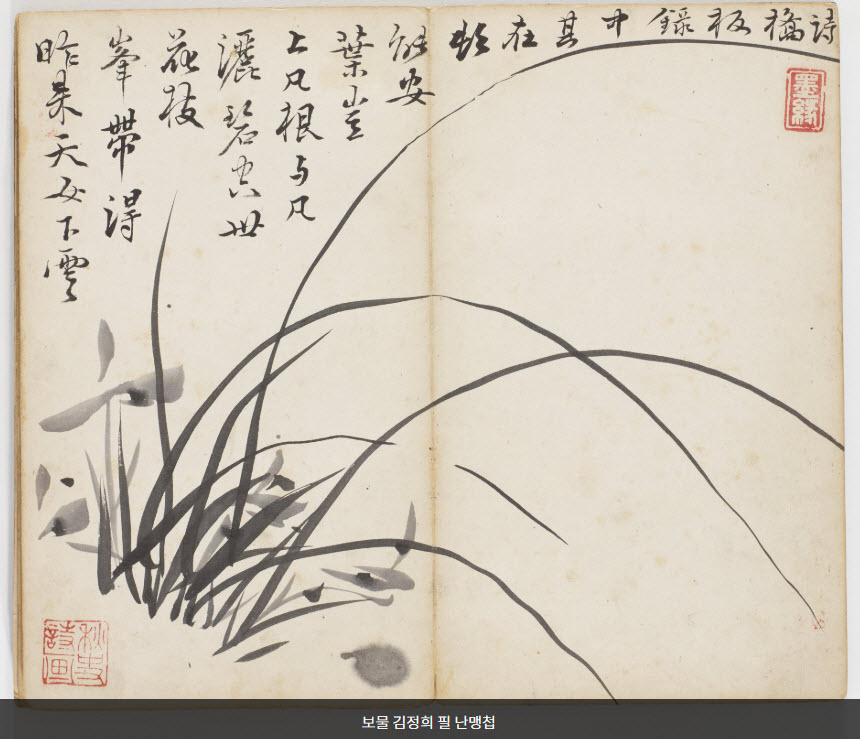 昨来天女下雲
峯帶得
花枝
灑碧空世
上凡根与凡
葉豈
能安
頓在其中錄板橋詩
墨緣
秋史
詩画
보물 김정희 필 난맹첩